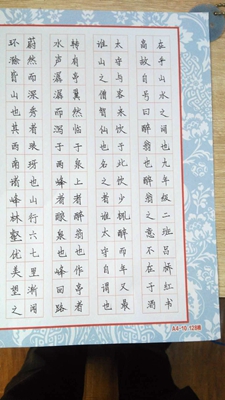 环滁皆山也其西南诸峰林壑优美望之
蔚然而深秀者琅琊也山行六七里渐闻
水声潺潺而泻于两峰者酿泉也峰回路
转有亭翼然临于泉上者醉翁亭也作亭者
谁山之僧智仙也名之者谁太守自谓也
太守与客来饮于此饮少辄醉而年又最
高故自号曰醉翁也醉翁之意不在于酒
在乎山水之间也九年级二班吕红书
A4-10.128格